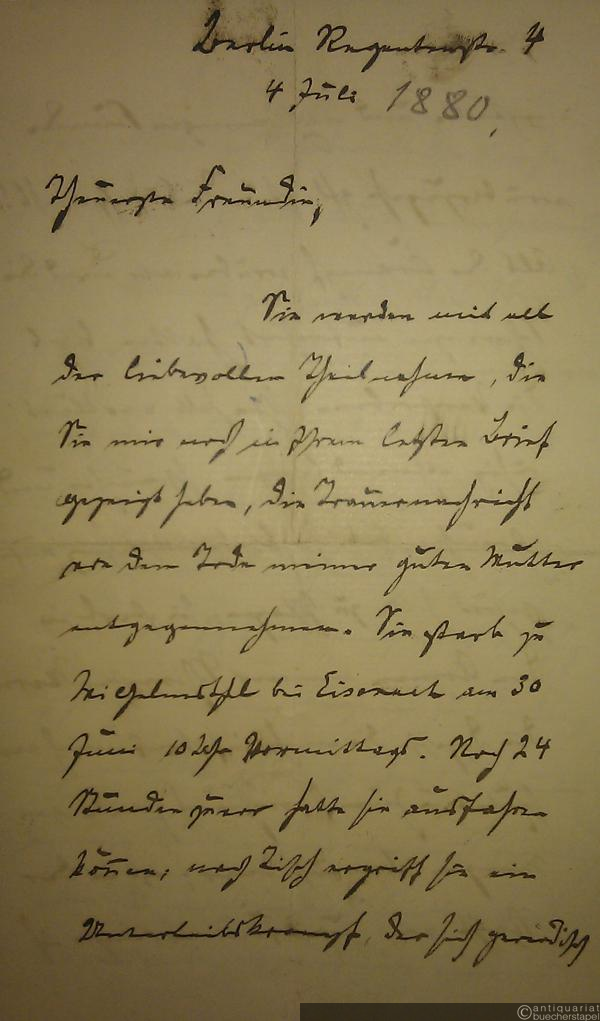 Berlin Regentenstr. 4
4 Juli 1880,
Theuerste Freundin,
Sie werden mit all
der liebevollen Theilnahme, die
Sie mir noch in Ihrem letzten Brief
gezeigt haben, die Trauernachricht
von dem Tode meiner guten Mutter
entgegennehmen. Sie starb zu
Wilhelmsthal bei Eisenach am 30
Juni 10 Uhr Vormittags. Noch 24
Stunden zuvor hatte sie ausfahren
können; nach Tisch ergriff sie ein
Unterleibskrampf, der sich periodisch
©antiquariat
buecherstapel